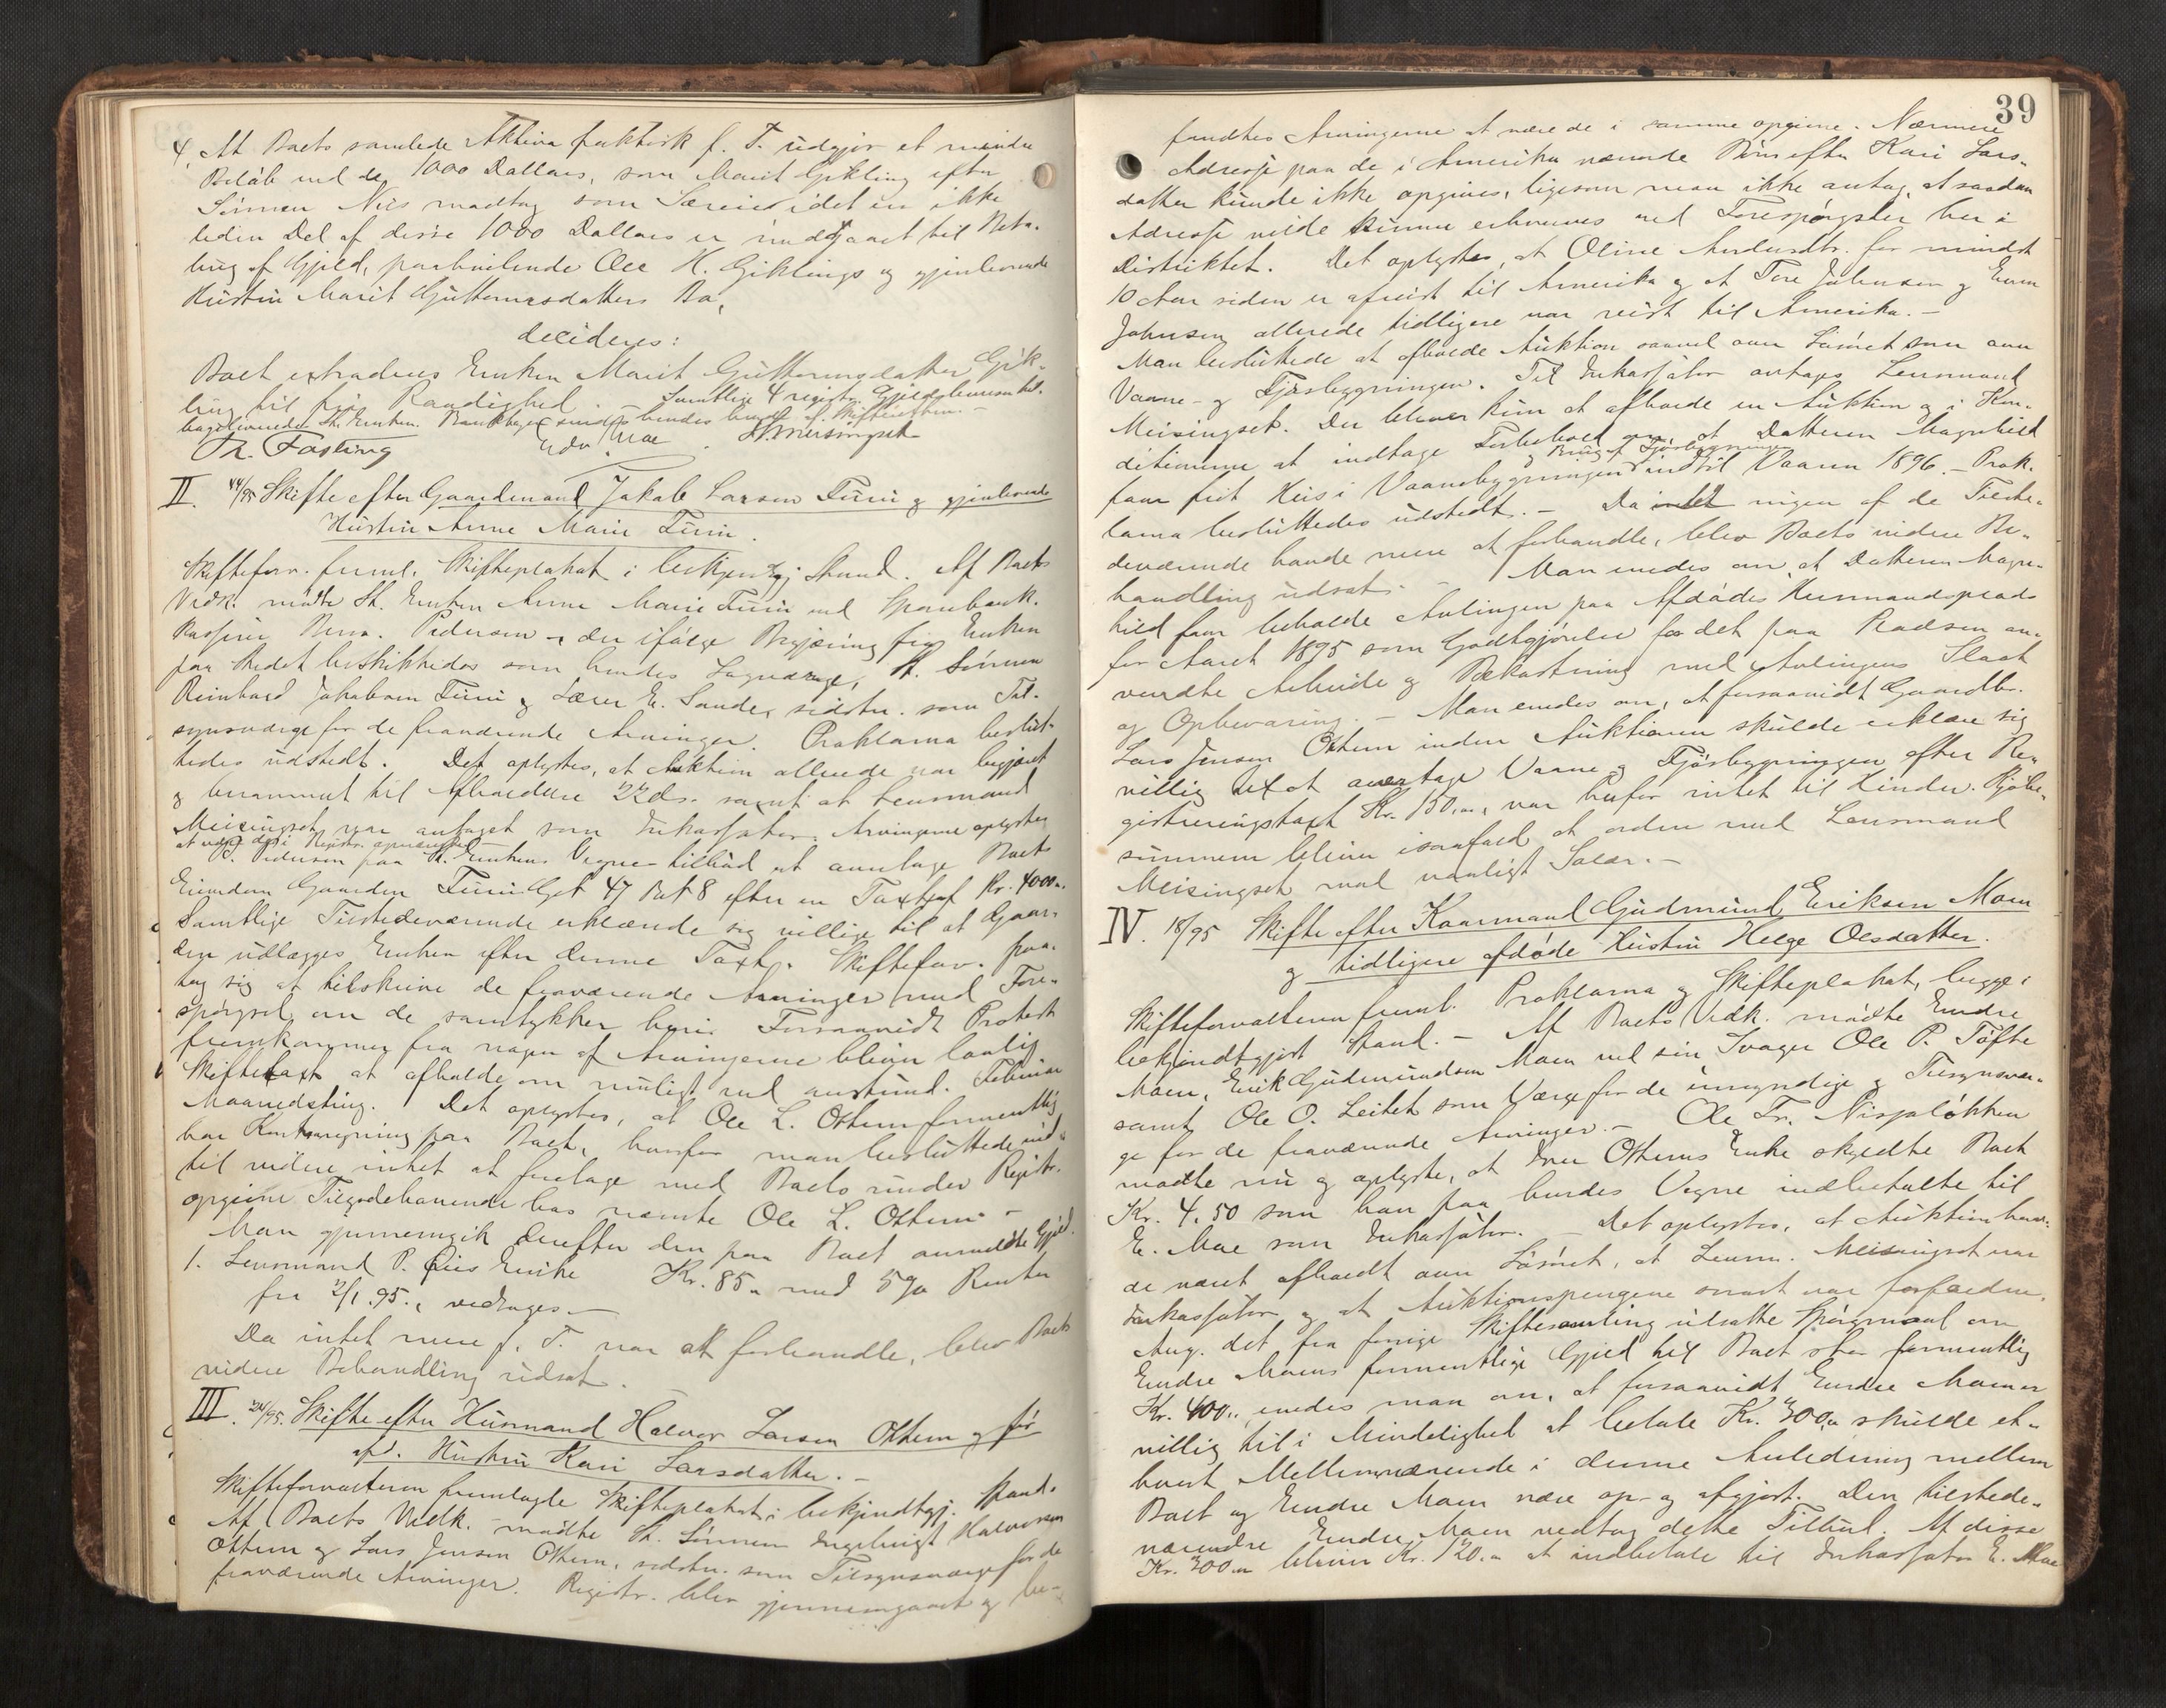 4. At Boets samlede Aktiva faktisk f. T. udgjør et mindre
Beløb end de 1000 Dollars, som Marit Gikling efter
Sønnen Nils modtog som Særeie idet en ikke
liden Del af disse 1000 Dollars er medgaaet til Beta-
ling af Gjeld, paahvilende Ole H. Giklings og gjenlevende
Hustru Marit Guttormsdatters Bo,
decideres:
Boet extraderes Enken Marit Guttormsdatter Gik-
ling til fri Raadighed. Samtlige 4 registr. Gjeldsbeviser til-
bageleveredes St. Enken. Bankbogen sendes hendes
Th. Fasting Edv. Moe H. Meisingset
II. 14/95 Skifte efter Gaardmand Jakob Larsen Furu og gjenlevende
Hustru Anne Marie Furu.
Skifteforv. freml. Skifteplakat i bekjendtgj. Stand. Af Boets
Vedk. mødte St. Enken Anne Marie Furu med Sparebank-
kasserer Pedersen, der ifølge Begjæring fra Enken
paa Stedet beskikkedes som hendes Lagværge, St. Sønnen
Reinhard Jakobsen Furu og Lærer E. Sande, sidstn. som Til-
synsværge for de fraværende Arvinger. Proklama beslut-
tedes udstedt. Det oplystes, at Auktion allerede var begjæret
og berammet til Afholdelse 22 ds. samt at Lensmand
Meisingset var antaget som Inkassator. Arvingerne oplystes
at være de i Registr. opnævnte.
Pedersen paa St. Enkens Vegne tilbød at overtage Boets
Eiendom Gaarden Furu Gd. 47 B. 8 efter en Taxt af Kr. 4000,-
Samtlige Tilstedeværende erklærede sig villige til at Gaar-
den udlægges Enken efter denne Taxt. Skifteforv. paa-
tog sig at tilskrive de fraværende Arvinger med Fore-
spørgsel, om de samtykker heri. Forsaavidt Protest
fremkommer fra nogen af Arvingerne bliver lovlig
Skiftetaxt at afholde om muligt ved anstund. Februar
Maanedsting. Det oplystes, at Ole L. Ottem formentlig
har Kontraregning paa Boet, hvorfor man besluttede ind-
til videre intet at foretage med Boets under Registr.
opgivne Tilgodehavende hos nævnte Ole L. Ottem. -
Man gjennemgik derefter den paa Boet anmeldte Gjeld.
1. Lensmand P. Enke Kr. 85,- med 5 % Renter
fra 2/1. 95., vedtages. -
Da intet mere f. T. var at forhandle, blev Boets
videre Behandling udsat.
III. 24/95. Skifte efter Husmand Halvor Larsen Ottem og før
afd. Hustru Kari Larsdatter. -
Skifteforvalteren fremlagde Skifteplakat i bekjendtgj. Stand.
Af Boets Vedk. mødte St. Sønnen Ingebrigt Halvorsen
Ottem og Lars Jensen Ottem, sidstn. som Tilsynsværge for de
fraværende Arvinger. Registr. blev gjennemgaaet og be-
39
fandtes Arvingerne at være de i samme opgivne. Nærmere
Adresse paa de i Amerika værende Børn efter Kari Lars-
datter kunde ikke opgives, ligesom man ikke antog, at saadan
Adresse vilde kunne erhverves ved Forespørgsler her i
Distriktet. Det oplystes, at Oline Andersdtr. for mindst
10 Aar siden er afreist til Amerika og at Tore Johnsen og Even
Johnsen allerede tidligere var reist til Amerika. -
Man besluttede at afholde Auktion saavel over Løsøret som over
Vaane- og Fjøsbygningen. Til Inkassator antages Lensmand
Meisingset. Der bliver kun at afholde en Auktion og i Kon-
ditionerne at indtage Forbehold om, at Datteren Magnhild
og Brug af Fjøsbygningen
faar frit Hus i Vaanebygningen indtil Vaaren 1896. - Prok-
lama besluttedes udstedt. - Da ingen af de Tilste-
deværende havde mere at forhandle, blev Boets videre Be-
handling udsat. - Man enedes om, at Datteren Magn-
hild faar beholde Avlingen paa Afdødes Husmandsplads
for Aaret 1895 som Godtgjørelse for det paa Pladsen an-
vendte Arbeide og Bekostning med Avlingens Slaat
og Opbevaring. - Man enedes om, at forsaavidt Gaardbr.
Lars Jensen Ottem inden Auktionen skulde erklære sig
villig til at overtage Vaane- og Fjøsbygningen efter Re-
gistreringstaxt Kr. 150,-, var herfor intet til Hinder. Kjøbe-
summen bliver isaafald at ordne med Lensmand
Meisingset mod vanligt Salær. -
IV. 18/95 Skifte efter Kaarmand Gudmund Eriksen Moen
og tidligere afdøde Hustru Helge Olsdatter.
Skifteforvalteren freml. Proklama og Skifteplakat, begge i
bekjendtgjort Stand. - Af Boets Vedk. mødte Endre
Moen, Erik Gudmundsen Moen med sin Svager Ole P. Tøfte
samt Ole O. Leitet som Værge for de umyndige og Tilsynsvær-
ge for de fraværende Arvinger. - Ole Tr. Nisjaløkken
mødte nu og oplyste, at Iver Ottems Enke skyldte Boet
Kr. 4,50 som han paa hendes Vegne indbetalte til
E. Moe som Inkassator. - Det oplystes, at Auktion hav-
de været afholdt over Løsøret, at Lensm. Meisingset var
Inkassator og at Auktionspengene snart var forfaldne.
Ang. det fra forrige Skiftesamling udsatte Spørgsmaal om
Endre Moens formentlige Gjeld til Boet stor formentlig
Kr. 400,-, enedes man om, at forsaavidt Endre Moen er
villig til i Mindelighed at betale Kr. 300,- skulde et-
hvert Mellemværende i denne Anledning mellem
Boet og Endre Moen være op- og afgjort. Den tilstede-
værende Endre Moen vedtog dette Tilbud. Af disse
Kr. 300,- bliver Kr. 120,- at indbetale til Inkassator E. Moe